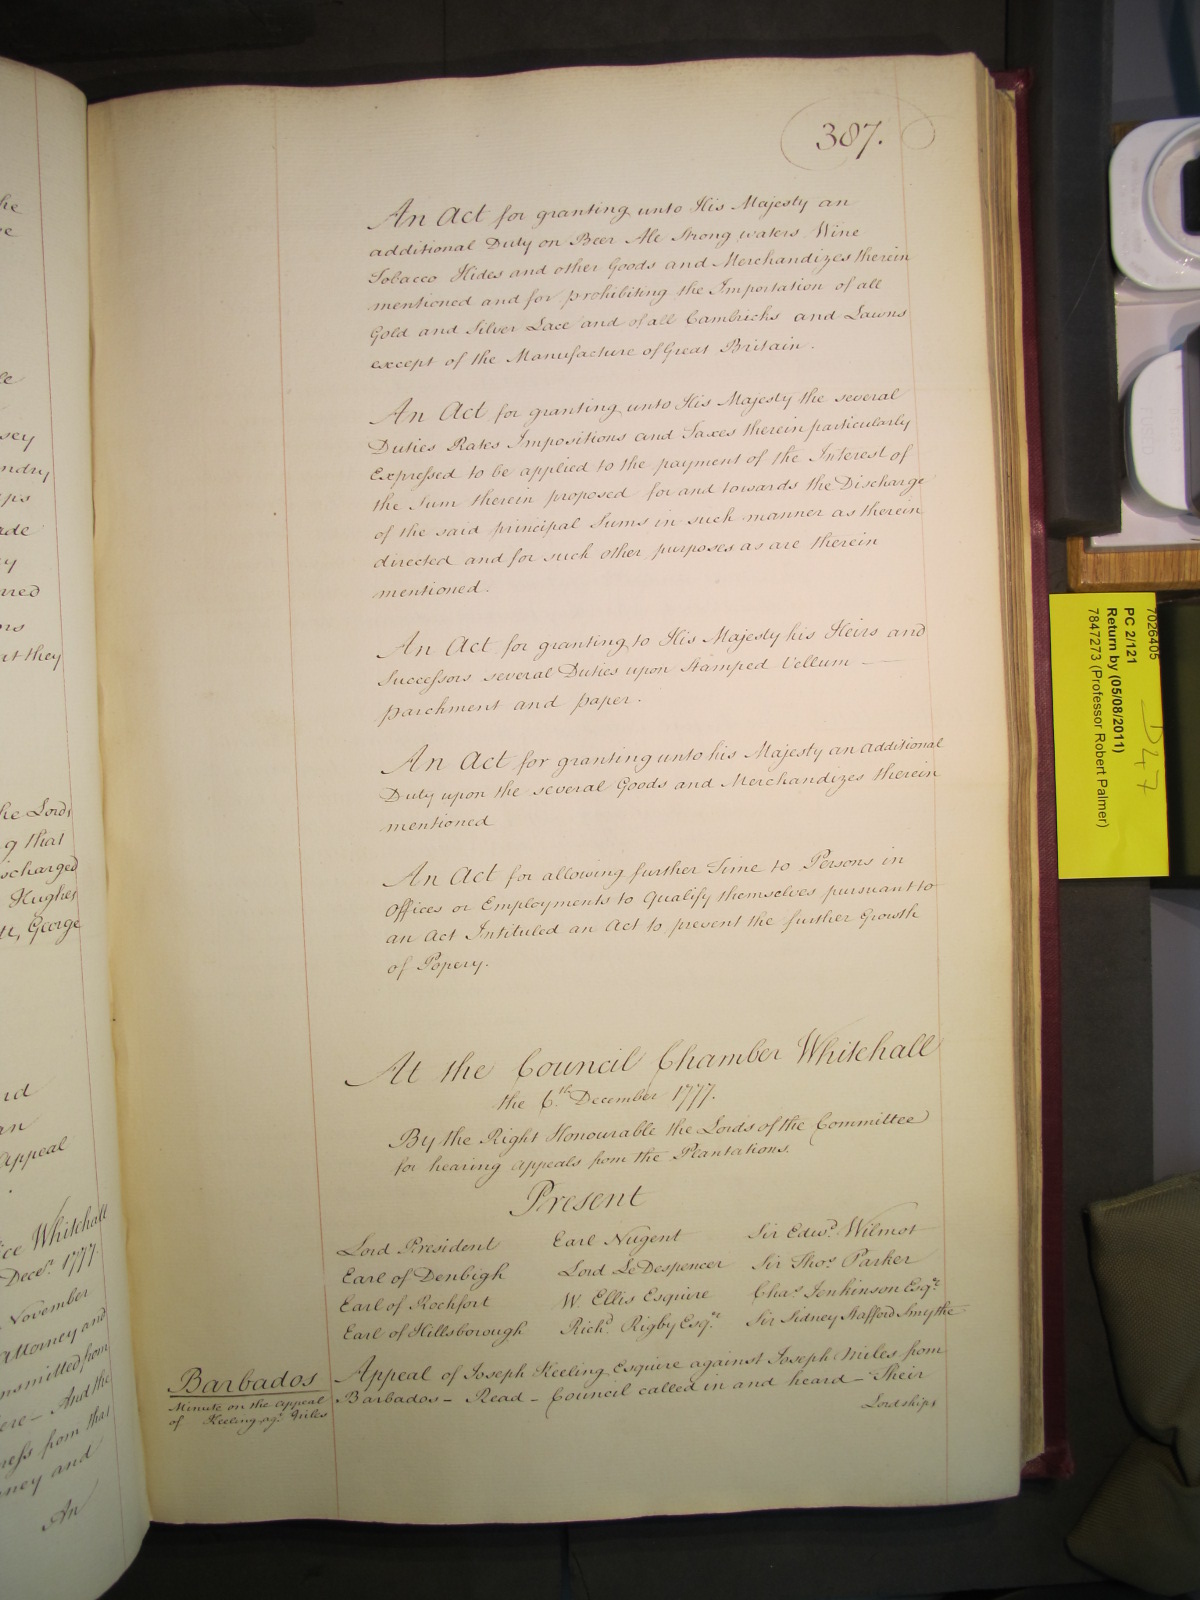 387.
An Act for granting unto His Majesty an
additional Duty on Beer Ale Strong waters Wine
Tobacco Hides and other Goods and Merchandizes therein
mentioned and for prohibiting the Importation of all
Gold and Silver Lace and of all Cambricks and Lawns
except of the Manufacture of Great Britain.
An Act for granting unto His Majesty the several
Duties Rates Impositions and Taxes therein particularly
Expressed to be applied to the payment of the Interest of
the Sum therein proposed for and towards the Discharge
of the said principal Sums in such manner as therein
directed and for such other purposes as are therein
mentioned.
An Act for granting to His Majesty his Heirs and
Successors several Duties upon Stamped Vellum —
parchment and paper.
An Act for granting unto his Majesty an additional
Duty upon the several Goods and Merchandizes therein
mentioned
An Act for allowing further Time to Persons in
Offices or Employments to Qualify themselves pursuant to
an Act Intituled an Act to prevent the further Growth
of Popery.
At the Council Chamber Whitehall
the 6th. December 1777.
By the Right Honourable the Lords of the Committee
for hearing appeals from the Plantations.
Present
Lord President Earl Nugent Sir Edwd. Wilmot
Earl of Denbigh Lord LeDespencer Sir Thos. Parker
Earl of Rochfort W. Ellis Esquire Chas. Jenkinson Esqr.
Earl of Hillsborough Richd. Rigby Esqr. Sir Sidney Stafford Smythe
Barbados
Minute on the appeal
of Keeling agt. Niles
Appeal of Joseph Keeling Esquire against Joseph Niles from
Barbados – Read – Council called in and heard – Their
Lordships
he
sey
ndry
ade
at they
he Lords
g that
scharged
Hughes
George
an
appeal
ice Whitehall
Decr. 1777
November
Attorney and
nsmitted from
ere – And the
ress from that
ney and
An
7026405
PC 2/121
Return by (05/08/2011)
7847273 (Professor Robert Palmer)
D47